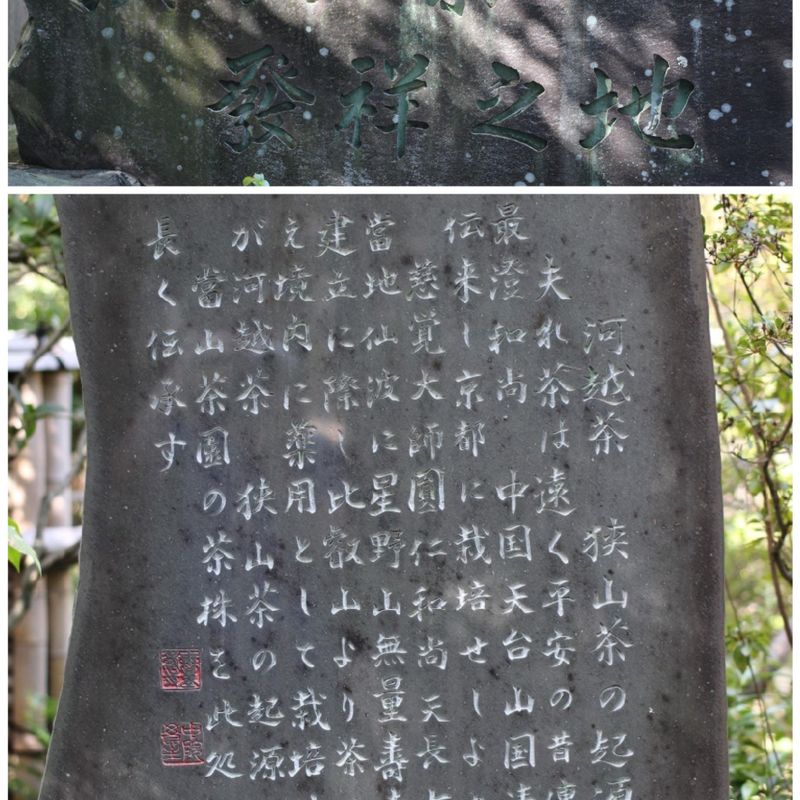 發祥之地
河越茶 狭山茶の起源
夫れ茶は遠く平安の昔
最澄和尚 中国天台山国清
伝来し京都に栽培せしよ
慈覚大師圓仁和尚 天長
當地仙波に星野山無量壽
建立に際し比叡山より茶
え境内に薬用として栽培
が河越茶 狭山茶の起源
當山茶園の茶株を此処
長く伝承す